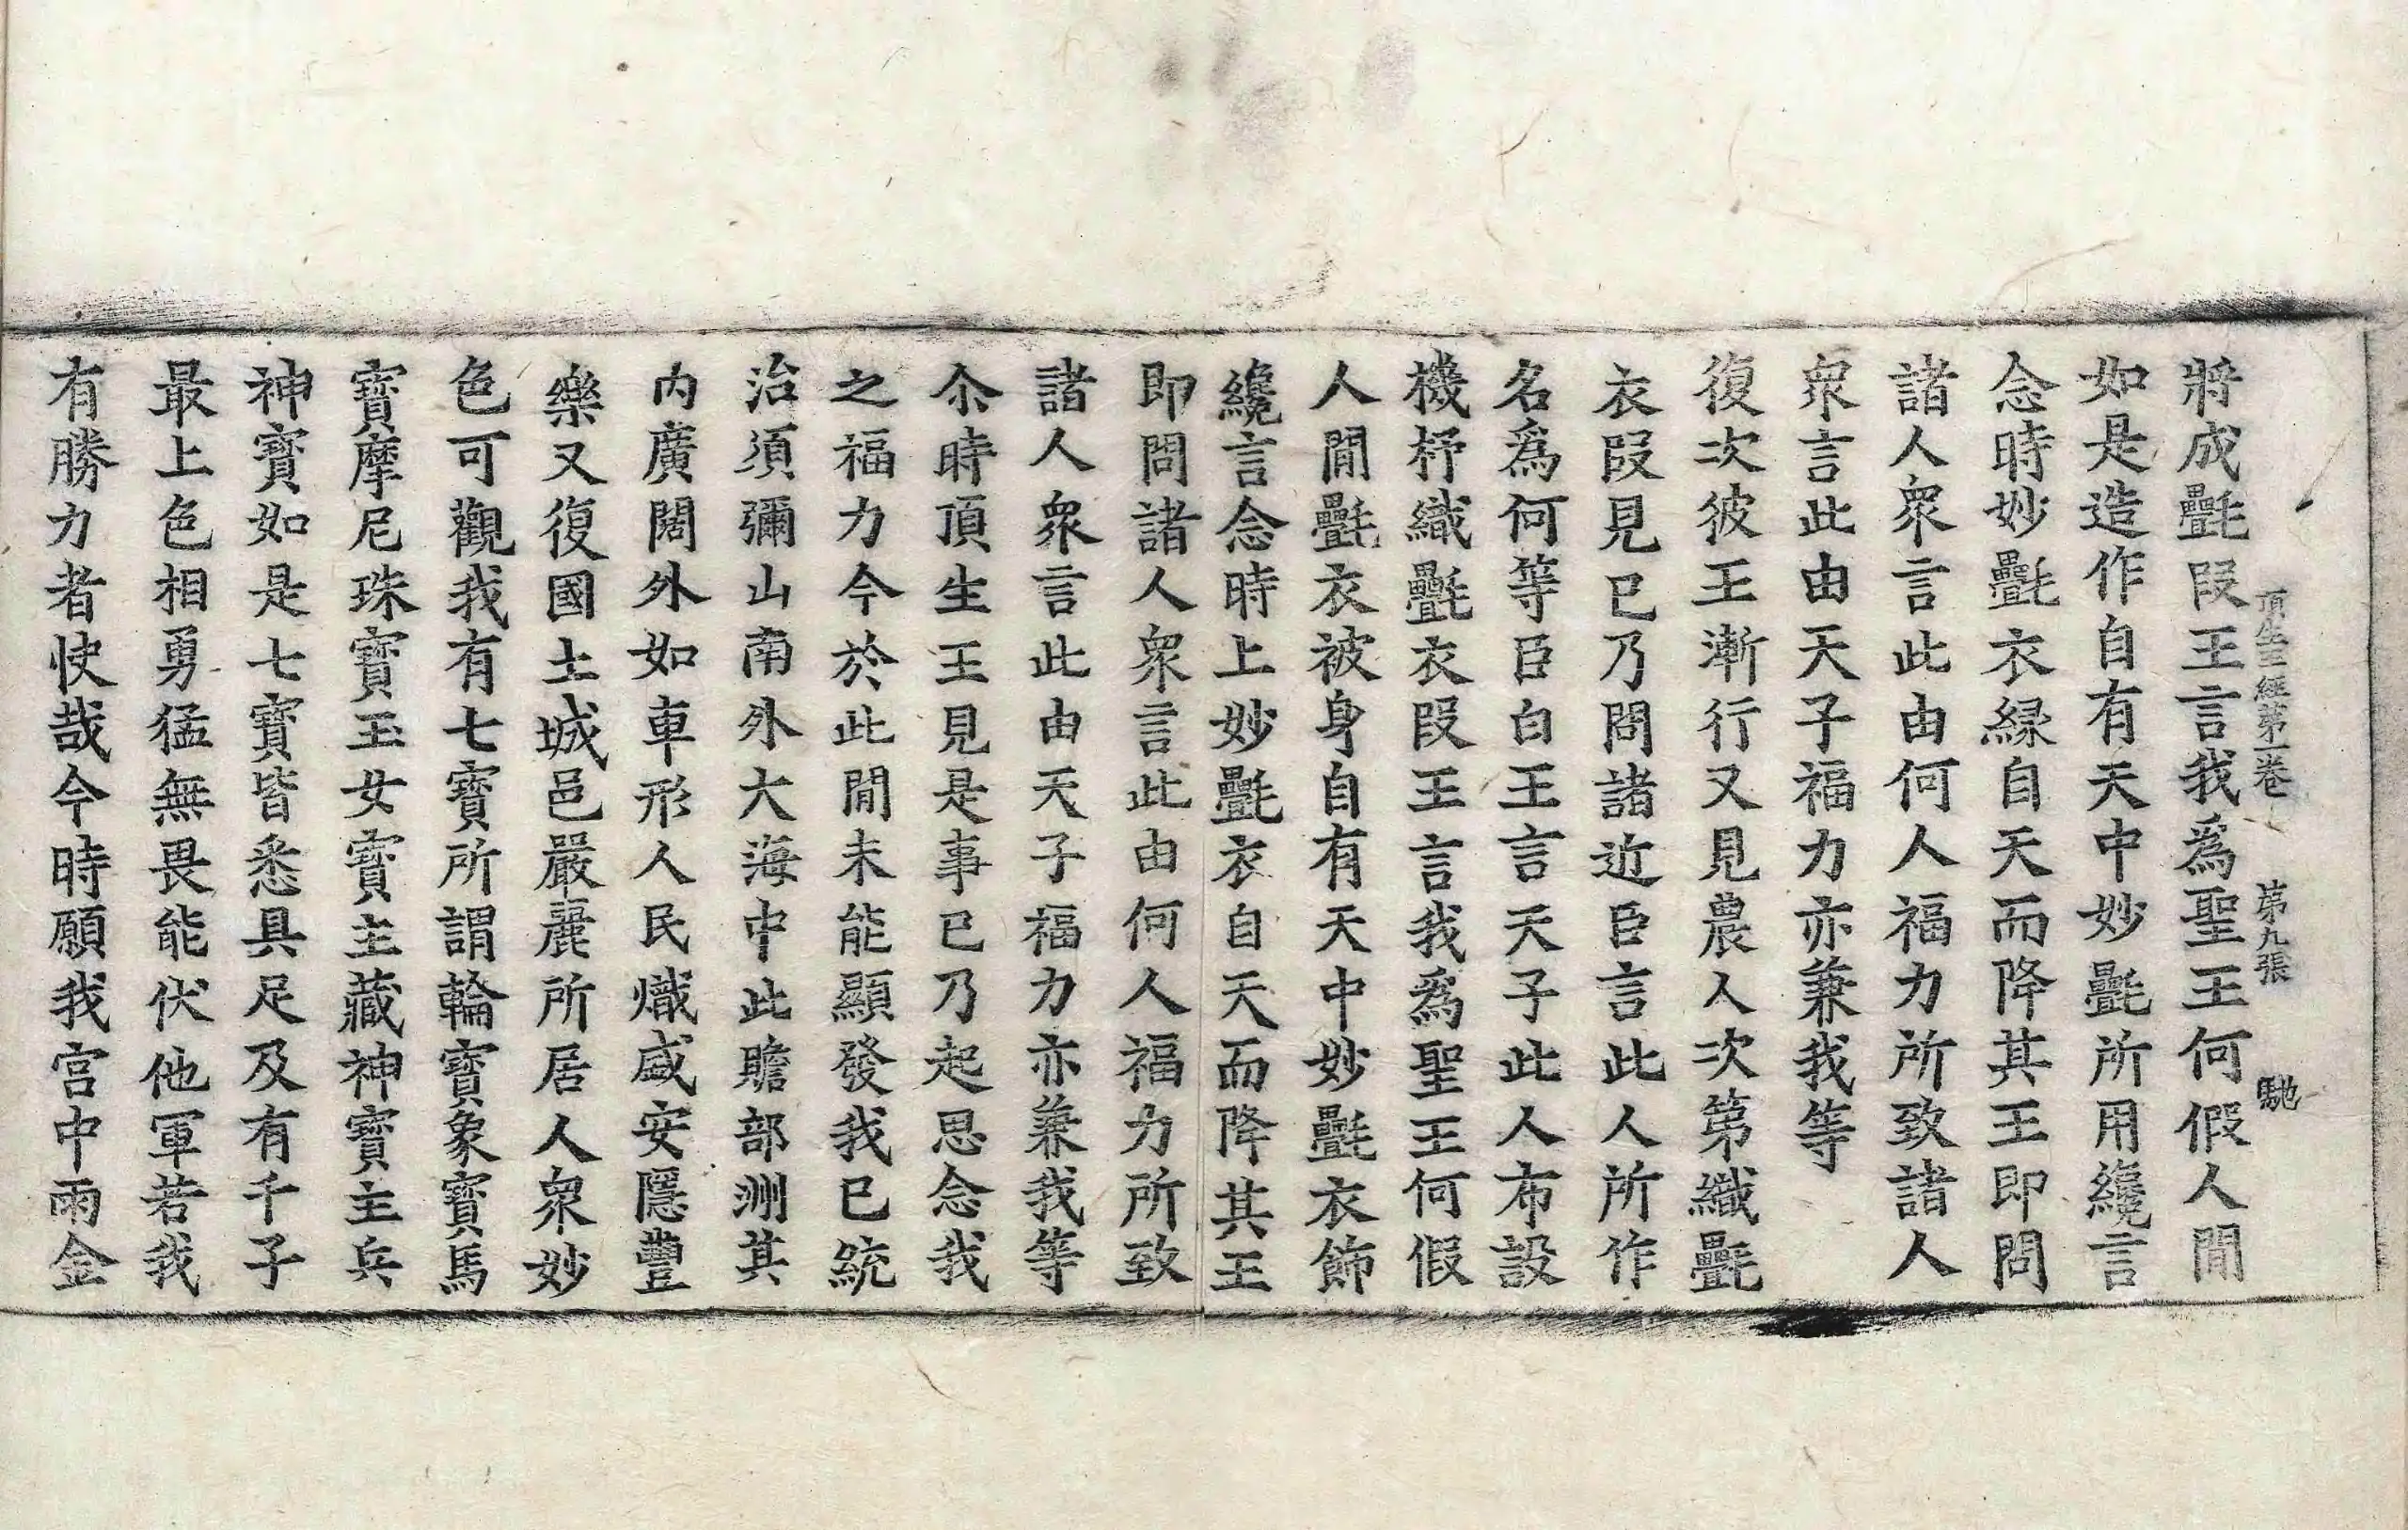 頂生王經第一卷　第九張　馳
將成㲲段王言我爲聖王何假人閒
如是造作自有天中妙㲲所用纔言
念時妙㲲衣緣自天而降其王即問
諸人衆言此由何人福力所致諸人
衆言此由天子福力亦兼我等
復次彼王漸行又見農人次第織㲲
衣段見已乃問諸近臣言此人所作
名爲何等臣白王言天子此人布設
機杼織㲲衣段王言我爲聖王何假
人閒㲲衣被身自有天中妙㲲衣飾
纔言念時上妙㲲衣自天而降其王
即問諸人衆言此由何人福力所致
諸人衆言此由天子福力亦兼我等
尒時頂生王見是事已乃起思念我
之福力今於此閒未能顯發我已統
治須彌山南外大海中此贍部洲其
內廣闊外如車形人民熾盛安隱豐
樂又復國土城邑嚴麗所居人衆妙
色可觀我有七寶所謂輪寶象寶馬
寶摩尼珠寶玉女寶主藏神寶主兵
神寶如是七寶皆悉具足及有千子
最上色相勇猛無畏能伏他軍若我
有勝力者快哉今時願我宮中雨金